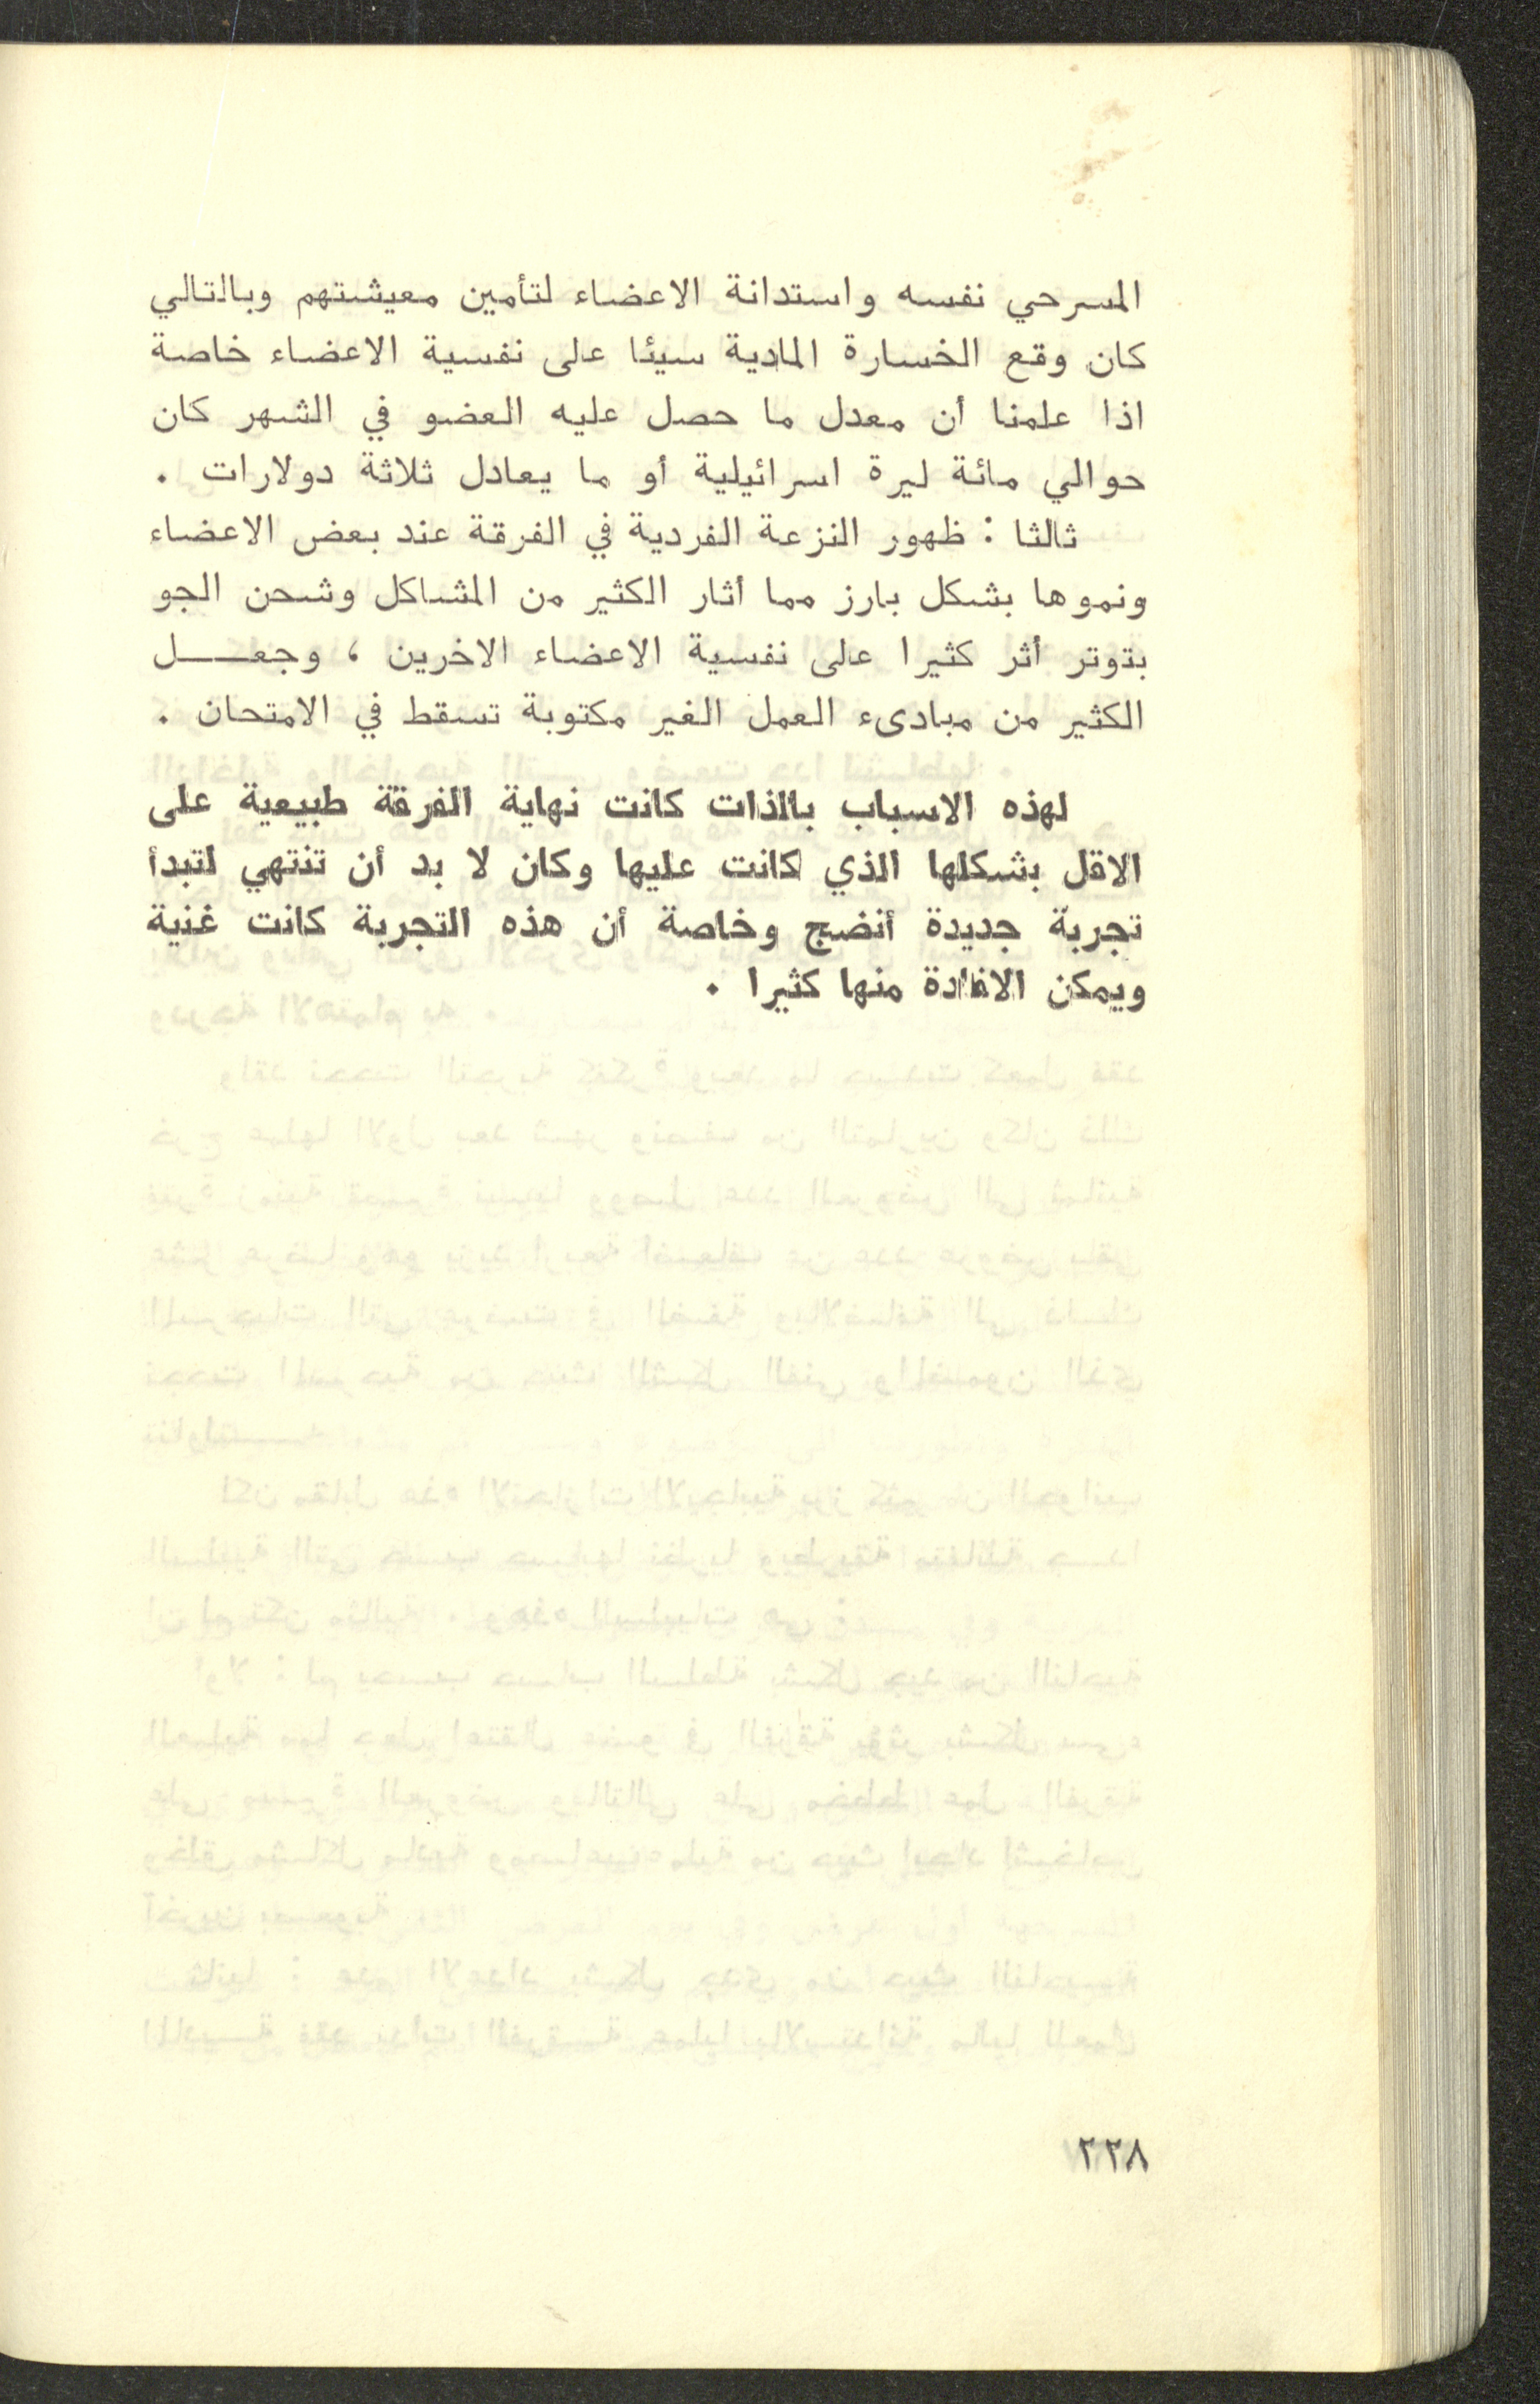 المسرحي نفسه واستدانة الاعضاء لتأمين معيشتهم وبالتالي
كان وقع الخسارة المادية سيئا على نفسية الاعضاء خاصة
اذا علمنا أن معدل ما حصل عليه العضو في الشهر كان
حوالي مائة ليرة اسرائيلية أو ما يعادل ثلاثة دولارات .
ثالثا : ظهور النزعة الفردية في الفرقة عند بعض الاعضاء
ونموها بشكل بارز مما أثار الكثير من المشاكل وشحن الجو
بتوتر أثر كثيرا على نفسية الاعضاء الاخرين ، وجعـــــل
الكثير من مبادىء العمل الغير مكتوبة تسقط في الامتحان .
لهذه الاسباب بالذات كانت نهاية الفرقة طبيعية على
الاقل بشكلها الذي كانت عليها وكان لا بد أن تنتهي لتبدأ
تجربة جديدة أنضج وخاصة أن هذه التجربة كانت غنية
ويمكن الافادة منها كثيرا .
٢٢٨